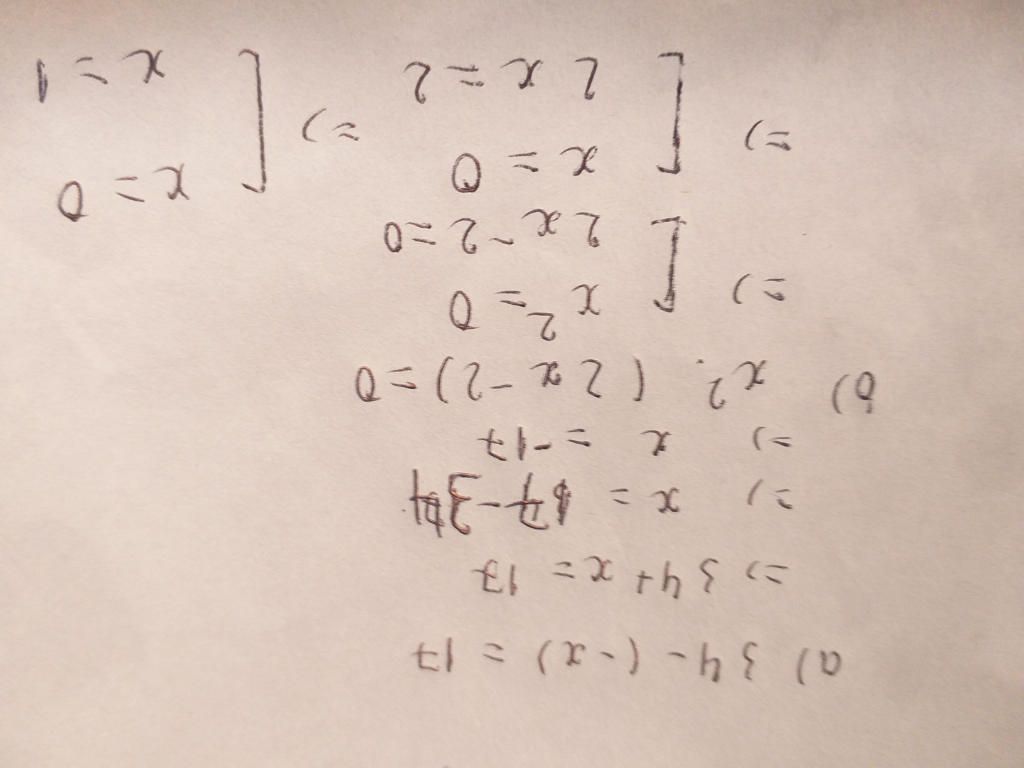 a) 34 - (-x) = 17
=) 34 + x = 17
=) x = 17 - 34
=) x = -17
b) x². (2x - 2) = 0
=) [ x² = 0
2x - 2 = 0
=) [ x = 0 =) [ x = 0
2x = 2 x = 1